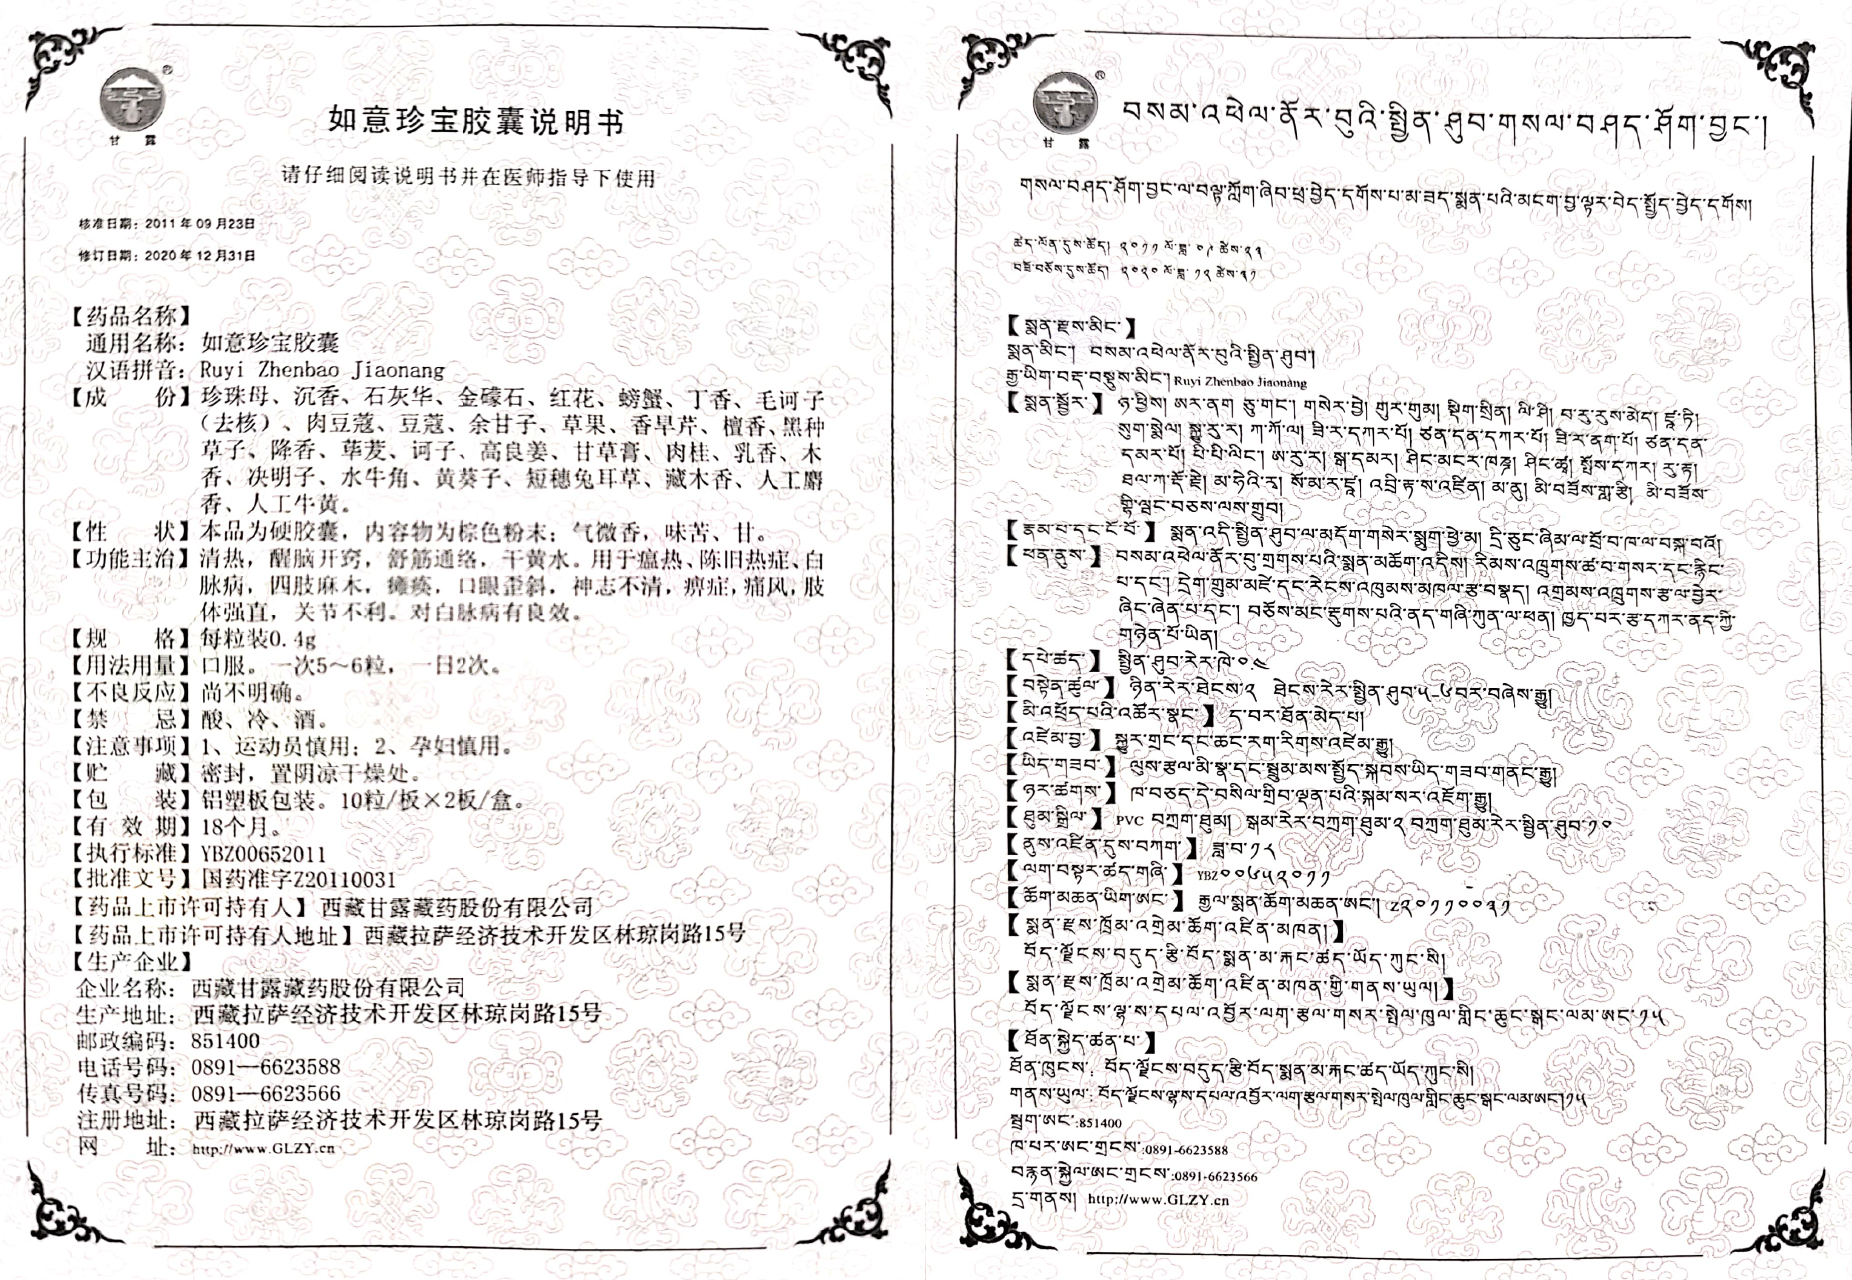 甘露
如意珍宝胶囊说明书
请仔细阅读说明书并在医师指导下使用
核准日期：2011 年 09 月23日
修订日期：2020 年 12 月31日
【药品名称】
通用名称：如意珍宝胶囊
汉语拼音：Ruyi Zhenbao Jiaonang
【成 份】珍珠母、沉香、石灰华、金礞石、红花、螃蟹、丁香、毛诃子
（去核）、肉豆蔻、豆蔻、余甘子、草果、香旱芹、檀香、黑种
草子、降香、荜茇、诃子、高良姜、甘草膏、肉桂、乳香、木
香、决明子、水牛角、黄葵子、短穗兔耳草、藏木香、人工麝
香、人工牛黄。
【性 状】本品为硬胶囊，内容物为棕色粉末；气微香，味苦、甘。
【功能主治】清热，醒脑开窍，舒筋通络，干黄水。用于瘟热、陈旧热症、白
脉病，四肢麻木，瘫痪，口眼歪斜，神志不清，痹症，痛风，肢
体强直，关节不利。对白脉病有良效。
【规 格】每粒装0.4g
【用法用量】口服。一次5～6粒，一日2次。
【不良反应】尚不明确。
【禁 忌】酸、冷、酒。
【注意事项】1、运动员慎用；2、孕妇慎用。
【贮 藏】密封，置阴凉干燥处。
【包 装】铝塑板包装。10粒/板×2板/盒。
【有 效 期】18个月。
【执行标准】YBZ00652011
【批准文号】国药准字Z20110031
【药品上市许可持有人】西藏甘露藏药股份有限公司
【药品上市许可持有人地址】西藏拉萨经济技术开发区林琼岗路15号
【生产企业】
企业名称：西藏甘露藏药股份有限公司
生产地址：西藏拉萨经济技术开发区林琼岗路15号
邮政编码：851400
电话号码：0891—6623588
传真号码：0891—6623566
注册地址：西藏拉萨经济技术开发区林琼岗路15号
网 址：http://www.GLZY.cn
甘露
བསམ་འཕེལ་ནོར་བུའི་སྤྱིན་ཤུབ་གསལ་བཤད་ཤོག་བྱང་།
གསལ་བཤད་ཤོག་བྱང་ལ་བལྟ་ཀློག་ཞིབ་ཕྲ་བྱེད་དགོས་པ་མ་ཟད་སྨན་པའི་མངག་བྱ་ལྟར་བེད་སྤྱོད་བྱེད་དགོས།
ཚད་ལོན་དུས་ཚོད། ༢༠༡༡ ལོ་ཟླ་ ༠༩ ཚེས་༢༣
བཟོ་བཅོས་དུས་ཚོད། ༢༠༢༠ ལོ་ཟླ་ ༡༢ ཚེས་༣༡
【སྨན་རྫས་མིང་】
སྨན་མིང་། བསམ་འཕེལ་ནོར་བུའི་སྤྱིན་ཤུབ།
རྒྱ་ཡིག་བརྡ་བསྡུས་མིང་། Ruyi Zhenbao Jiaonang
【སྨན་སྦྱོར་】ཉ་ཕྱིས། ཨར་ནག ཅུ་གང་། གསེར་བྱེ། གུར་གུམ། སྡིག་སྲིན། ལི་ཤི། བ་རུ་རུས་མེད། ཛཱ་ཏི།
སུག་སྨེལ། སྐྱུ་རུ་ར། ཀ་ཀོ་ལ། ཟི་ར་དཀར་པོ། ཙན་དན་དཀར་པོ། ཟི་ར་ནག་པོ། ཙན་དན་
དམར་པོ། པི་པི་ལིང་། ཨ་རུ་ར། སྒ་དམར། ཤིང་མངར་ཁཎྜ། ཤིང་ཚྭ། སྤོས་དཀར། རུ་རྟ།
ཐལ་ཀ་རྡོ་རྗེ། མ་ཧེའི་རྭ། སོ་མ་ར་ཛཱ། འབྲི་ཏ་ས་འཛིན། མ་ནུ། མི་བཟོས་གླ་རྩི། མི་བཟོས་
གྷི་ཝང་བཅས་ལས་གྲུབ།
【རྣམ་པ་དང་ངོ་བོ་】སྨན་འདི་སྤྱིན་ཤུབ་ལ་མདོག་གསེར་སྨུག་ཕྱེ་མ། དྲི་ཅུང་ཞིམ་ལ་བྲོ་བ་ཁ་ལ་བསྐ་བའོ།
【ཕན་ནུས་】བསམ་འཕེལ་ནོར་བུ་གྲགས་པའི་སྨན་མཆོག་འདིས། རིམས་འཁྲུགས་ཚ་བ་གསར་དང་རྙིང་
པ་དང་། དྲེག་གྲུམ་མཛེ་དང་རེངས་འཁུམས་མཁལ་རྩ་བསྣད། འགྲམས་འཁྲུགས་རྩ་ལ་བྱེར་
ཞིང་ཞེན་པ་དང་། བཅོས་མང་རྫུགས་པའི་ནད་གཞི་ཀུན་ལ་ཕན། ཁྱད་པར་རྩ་དཀར་ནད་ཀྱི་
གཉེན་པོ་ཡིན།
【དཔེ་ཚད་】སྤྱིན་ཤུབ་རེར་ཁེ་༠.༤
【བསྟེན་ཚུལ་】ཉིན་རེར་ཐེངས་༢ ཐེངས་རེར་སྤྱིན་ཤུབ་༥-༦བར་བཞེས་རྒྱུ།
【མི་འཕྲོད་པའི་འཚོར་སྣང་】ད་བར་ཐོན་མེད་པ།
【འཛེམ་བྱ་】སྐྱུར་གྲང་དང་ཆང་རག་རིགས་འཛེམ་རྒྱུ།
【ཡིད་གཟབ་】ལུས་རྩལ་མི་སྣ་དང་སྦྲུམ་མས་སྤྱོད་སྐབས་ཡིད་གཟབ་གནང་རྒྱུ།
【ཉར་ཚགས་】ཁ་བཅད་དེ་བསིལ་གྲིབ་ལྡན་པའི་སྐམ་སར་འཇོག་རྒྱུ།
【ཐུམ་སྒྲིལ་】PVC བཀྲག་ཐུམ། སྒམ་རེར་བཀྲག་ཐུམ་༢ བཀྲག་ཐུམ་རེར་སྤྱིན་ཤུབ་༡༠
【ནུས་འཛིན་དུས་བཀག་】ཟླ་བ་༡༨
【ལག་བསྟར་ཚད་གཞི་】YBZ༠༠༦༥༢༠༡༡
【ཆོག་མཆན་ཡིག་ཨང་】རྒྱལ་སྨན་ཆོག་མཆན་ཨང་། Z༢༠༡༡༠༠༣༡
【སྨན་རྫས་ཁྲོམ་འགྲེམ་ཆོག་འཛིན་མཁན།】
བོད་ལྗོངས་བདུད་རྩི་བོད་སྨན་མ་རྐང་ཚད་ཡོད་ཀུང་སི།
【སྨན་རྫས་ཁྲོམ་འགྲེམ་ཆོག་འཛིན་མཁན་གྱི་གནས་ཡུལ།】
བོད་ལྗོངས་ལྷ་ས་དཔལ་འབྱོར་ལག་རྩལ་གསར་སྤེལ་ཁུལ་གླིང་ཆུང་སྒང་ལམ་ཨང་་༡༥
【ཐོན་སྐྱེད་ཚན་པ་】
ཐོན་ཁུངས་: བོད་ལྗོངས་བདུད་རྩི་བོད་སྨན་མ་རྐང་ཚད་ཡོད་ཀུང་སི།
གནས་ཡུལ་: བོད་ལྗོངས་ལྷ་ས་དཔལ་འབྱོར་ལག་རྩལ་གསར་སྤེལ་ཁུལ་གླིང་ཆུང་སྒང་ལམ་ཨང་།༡༥
སྦྲག་ཨང་:851400
ཁ་པར་ཨང་གྲངས་:0891-6623588
བརྙན་སྐྱེལ་ཨང་གྲངས་:0891-6623566
དྲ་གནས། http://www.GLZY.cn